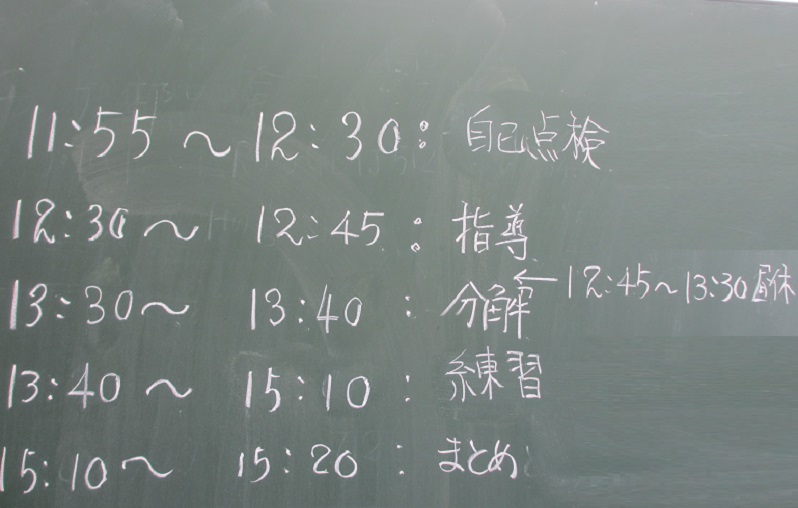 11:55～12:30：自己点検
12:30～12:45：指導
←12:45～13:30昼休
13:30～13:40：分解
13:40～15:10：練習
15:10～15:20：まとめ